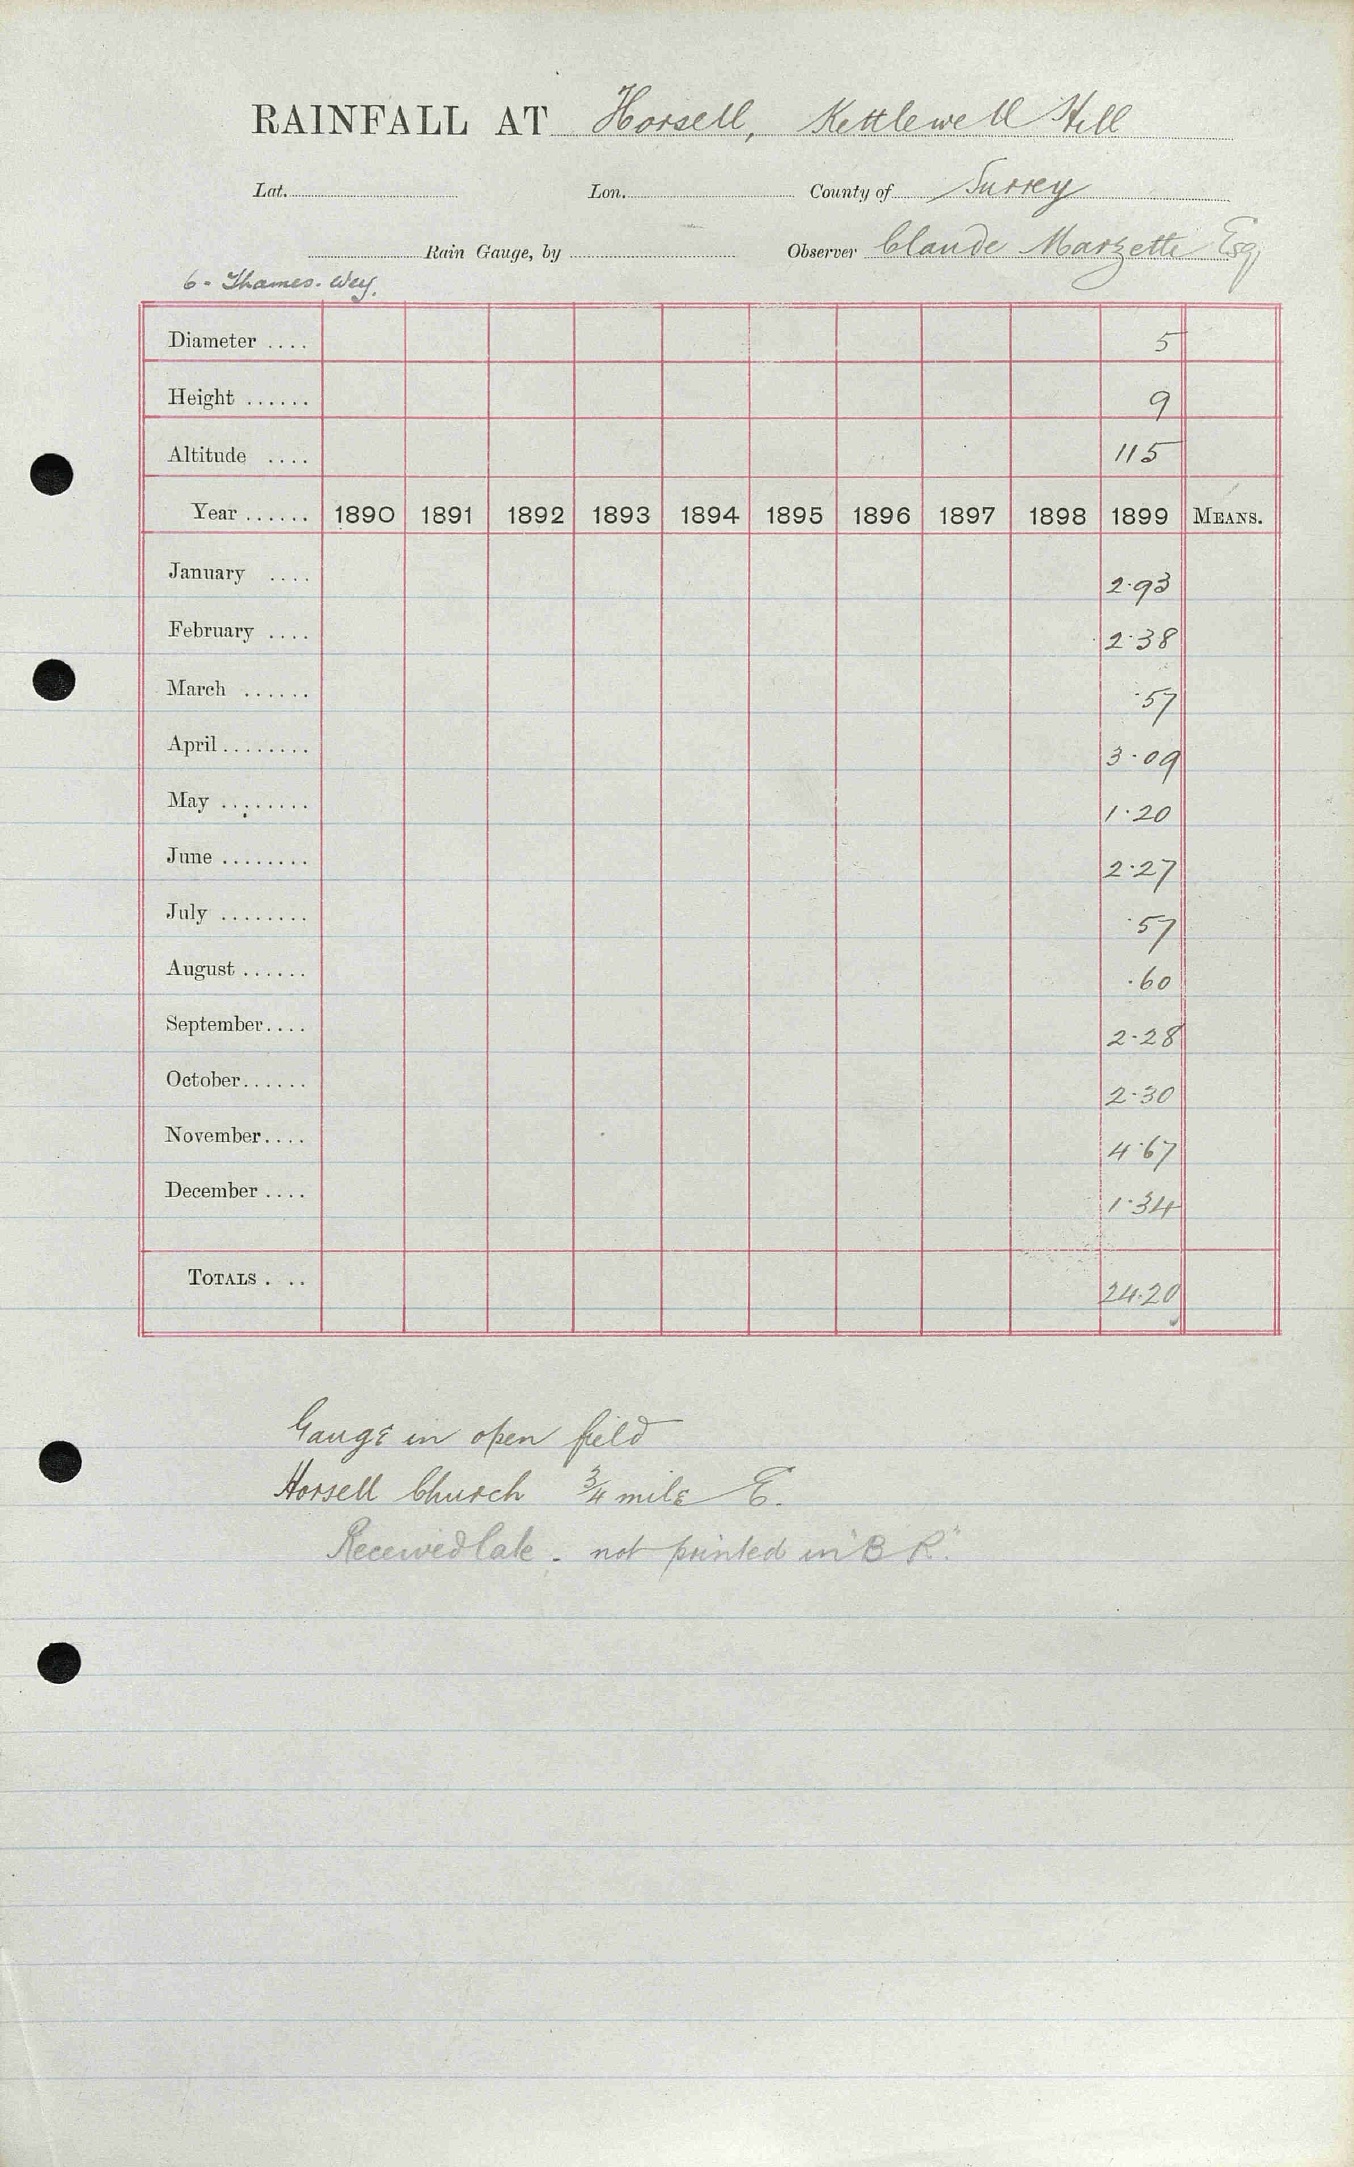 RAINFALL AT Horsell, Kettlewell Hill
Lat. Lon. County of Surrey
Rain Gauge, by Observer Claude Marzetti Esq
6 - Thames - Wey.
Diameter .... 5
Height ...... 9
Altitude .... 115
Year ...... 1890 1891 1892 1893 1894 1895 1896 1897 1898 1899 MEANS.
January .... 2·93
February .... 2·38
March ...... ·57
April ........ 3·09
May ........ 1·20
June ........ 2·27
July ........ ·57
August ...... ·60
September .... 2·28
October ...... 2·30
November .... 4·67
December .... 1·34
TOTALS . .. 24·20
Gauge in open field
Horsell Church 3/4 mile E.
Received late - not printed in "B R."